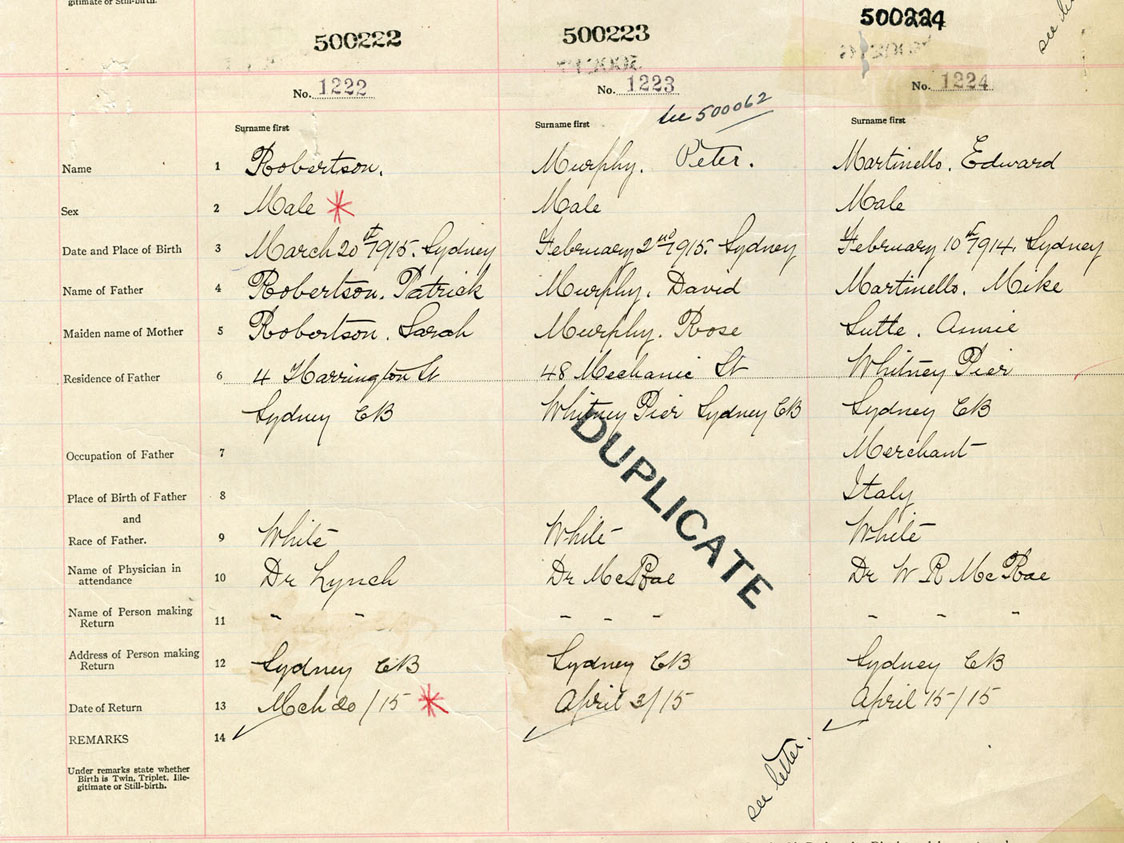 gitimate or Still-birth.
500222 500223 500224
see
No. 1222 No. 1223 No. 1224
see 500062
Surname first Surname first Surname first
Name 1 Robertson. Murphy. Peter. Martinello. Edward
Sex 2 Male * Male Male
Date and Place of Birth 3 March 20th 1915. Sydney February 2nd 1915. Sydney February 10th 1914. Sydney
Name of Father 4 Robertson. Patrick Murphy. David Martinello. Mike
Maiden name of Mother 5 Robertson. Sarah Murphy. Rose Sutte. Annie
Residence of Father 6 4 Harrington St 48 Mechanic St Whitney Pier
Sydney CB Whitney Pier Sydney CB Sydney CB
DUPLICATE
Occupation of Father 7 Merchant
Place of Birth of Father 8 Italy
and
Race of Father. 9 White White White
Name of Physician in
attendance 10 Dr Lynch Dr McRae Dr W R McRae
Name of Person making
Return 11 " " " " " " " "
Address of Person making
Return 12 Sydney CB Sydney CB Sydney CB
Date of Return 13 Mch 20/15 * April 3/15 April 15/15
REMARKS 14
see letter.
Under remarks state whether
Birth is Twin, Triplet, Ille-
gitimate or Still-birth.